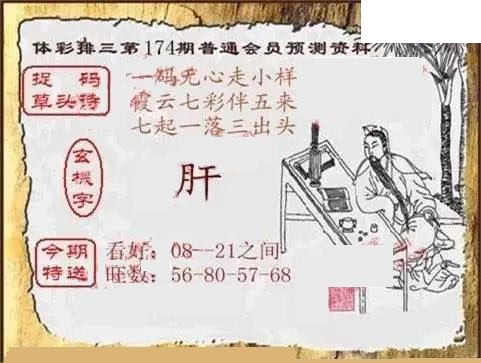 体彩排三第174期普通会员预测资料
捉码
草头诗
一码先心走小样
霞云七彩伴五来
七起一落三出头
玄機字
肝
今期
特送
看好：08--21之间
旺数：56-80-57-68